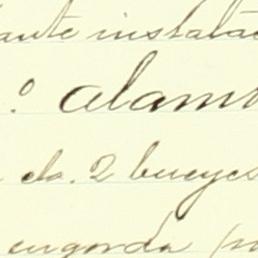 ante instala
º alam
da. 2 bueyes
engorda